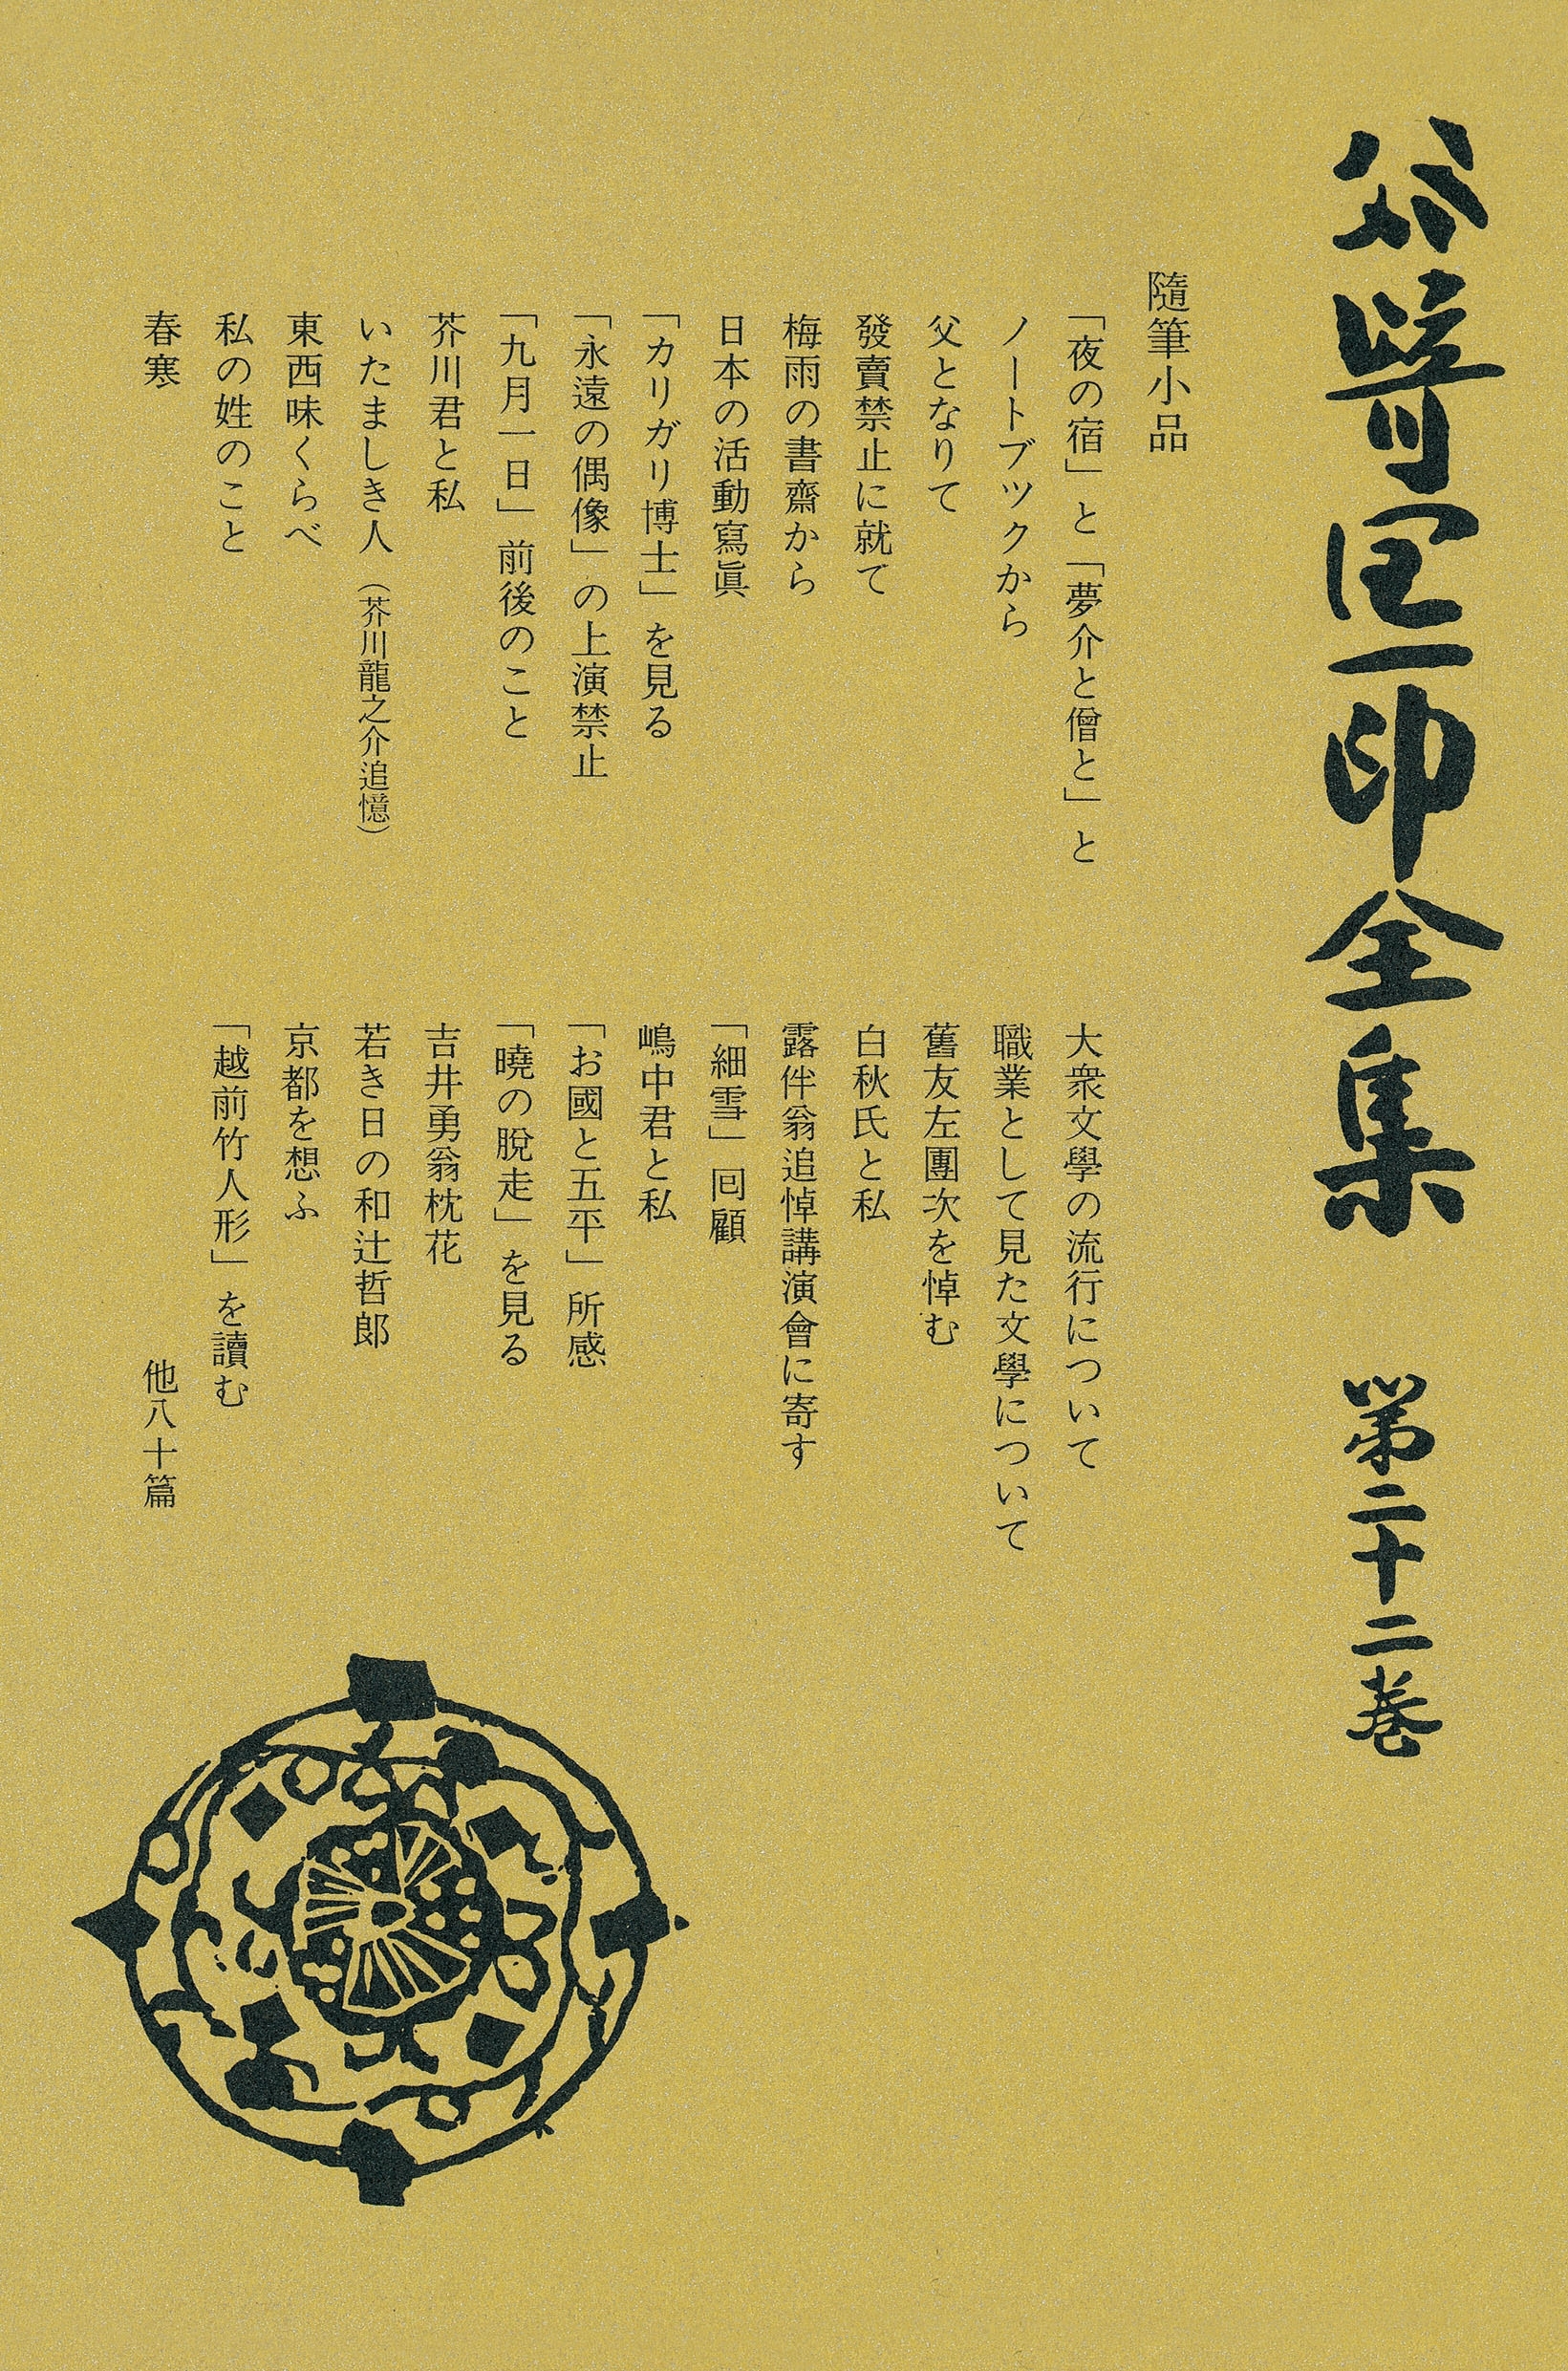 谷崎潤一郎全集 第二十二巻
隨筆小品
「夜の宿」と「夢介と僧と」と
ノートブツクから
父となりて
發賣禁止に就て
梅雨の書齋から
日本の活動寫眞
「カリガリ博士」を見る
「永遠の偶像」の上演禁止
「九月一日」前後のこと
芥川君と私
いたましき人（芥川龍之介追憶）
東西味くらべ
私の姓のこと
春寒
大衆文學の流行について
職業として見た文學について
舊友左團次を悼む
白秋氏と私
露伴翁追悼講演會に寄す
「細雪」囘顧
嶋中君と私
「お國と五平」所感
「曉の脫走」を見る
吉井勇翁枕花
若き日の和辻哲郎
京都を想ふ
「越前竹人形」を讀む
他八十篇